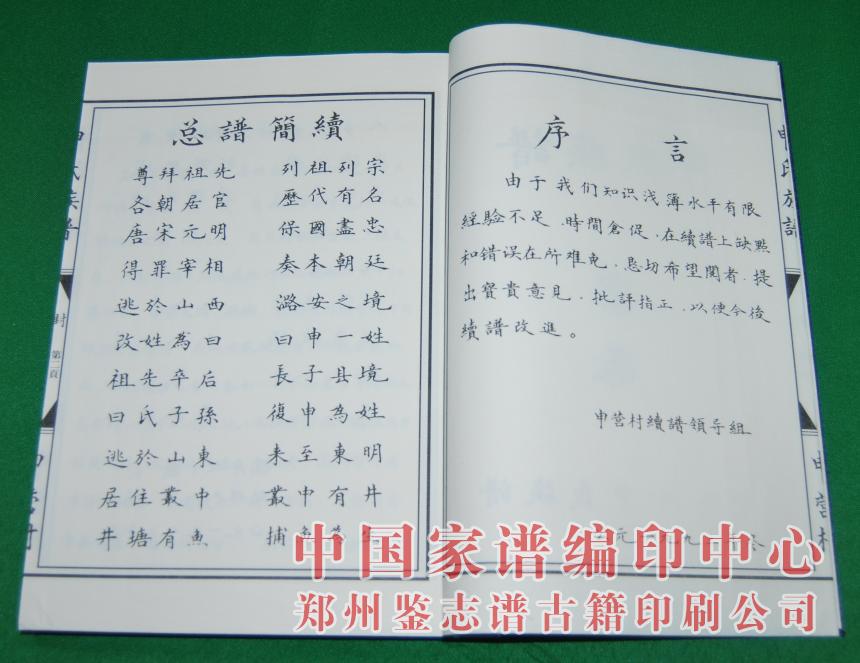 总譜簡續
尊拜祖先 列祖列宗
各朝居官 歷代有名
唐宋元明 保國盡忠
得罪宰相 奏本朝廷
逃於山西 潞安之境
改姓為曰 曰申一姓
祖先卒后 長子县境
曰氏子孫 復申為姓
逃於山東 来至東明
居住叢中 叢中有井
井塘有魚 捕魚
封
第二頁
序言
由于我们知识浅簿水平有限
经验不足，時間倉促，在續譜上缺點
和错误在所难免，恳切希望閱者，提
出寳貴意見，批評指正，以便今後
續譜改進。
申营村續譜領导組
元一九九 冬
申氏族譜
中国家谱编印中心
郑州鉴志谱古籍印刷公司